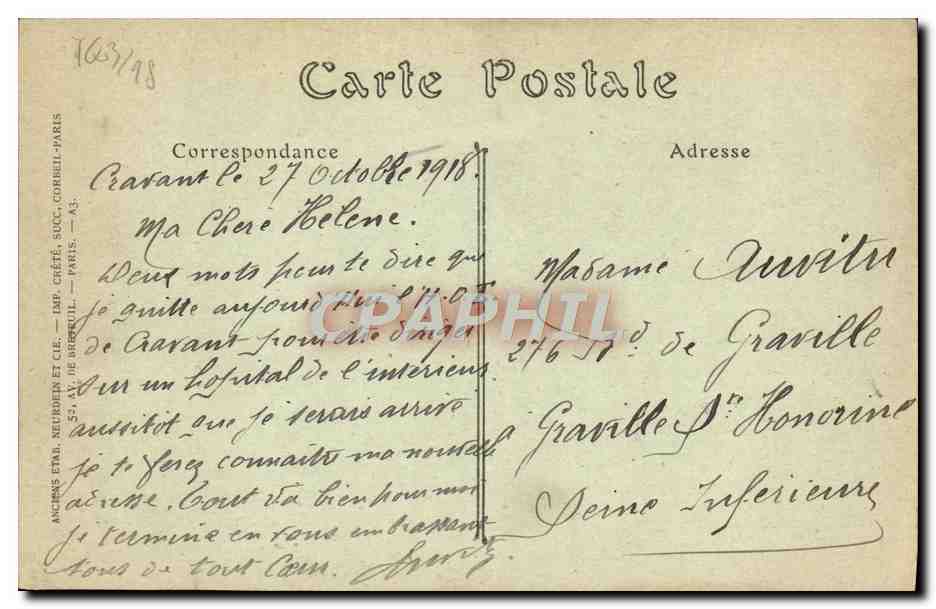 Carte Postale
Correspondance
Adresse
Cravant le 27 Octobre 1918.
Ma Chere Helene.
Deux mots pour te dire que
je quitte aujourd'hui l'H.O.E
de Cravant pour être diriger
sur un hopital de l'interieur.
aussitot que je serais arrivé
je te ferez connaitre ma nouvelle
adresse. Tout va bien pour moi
je termine en vous embrassant
tous de tout Cœur.
Madame Auvitu
276 Bd de Graville
à Graville Ste Honorine
Seine Inferieure
ANCIENS ETAB. NEURDEIN ET CIE. — IMP. CRÉTÉ, SUCC, CORBEIL-PARIS
52, AV. DE BRETEUIL. — PARIS. — A3.
CPAPHIL